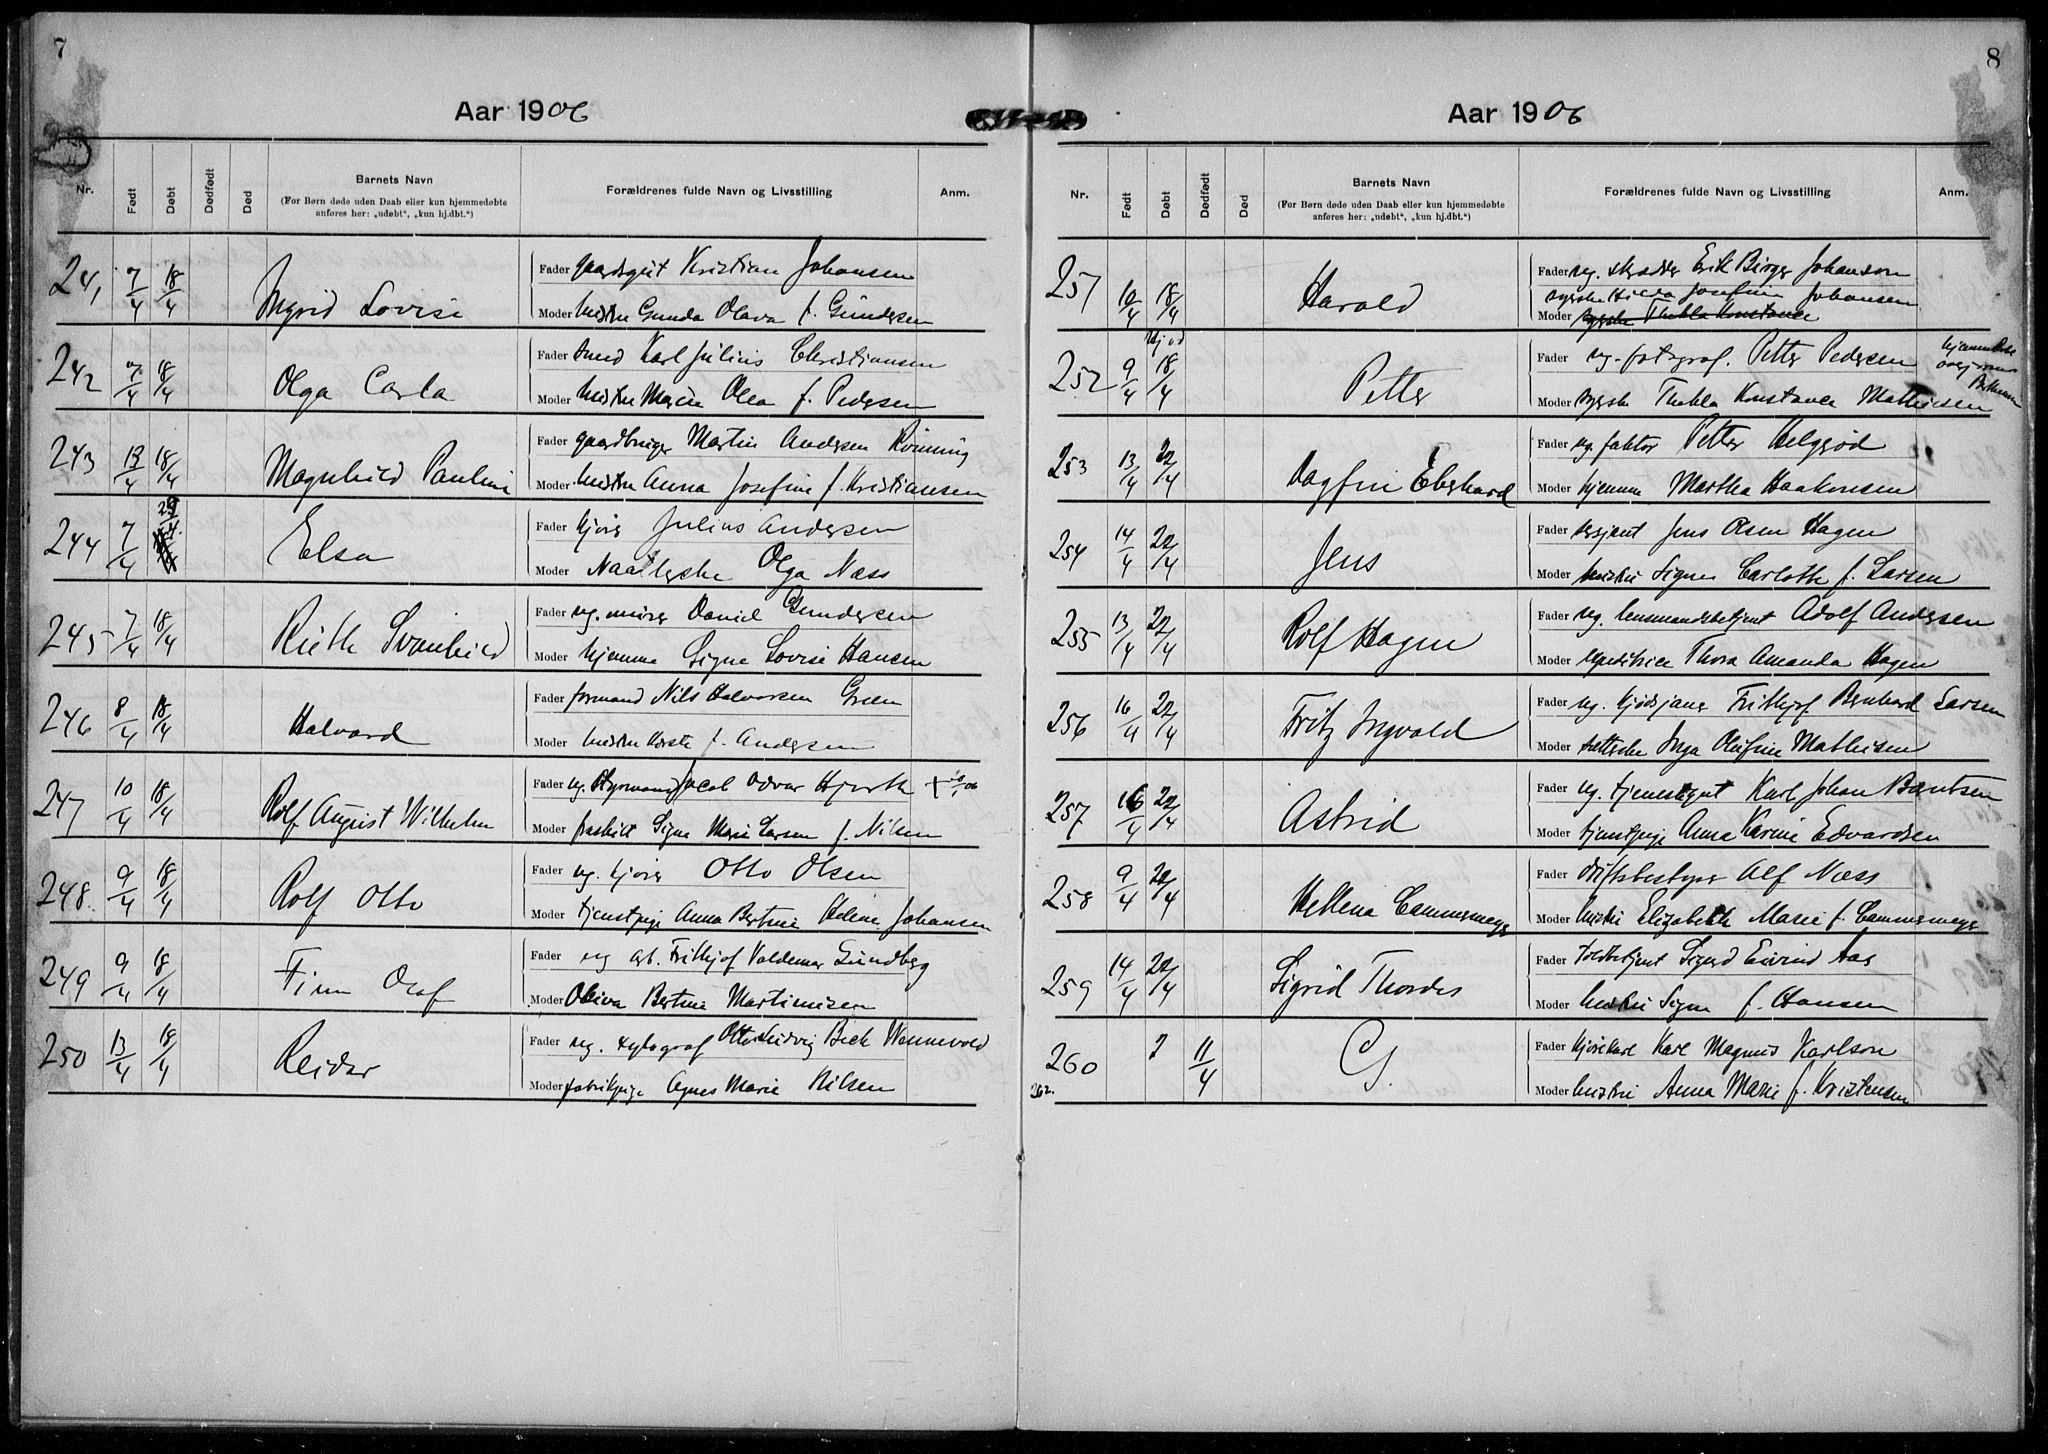 7
Aar 1906
Nr. Født Døbt Dødfødt Død Barnets Navn Forældrenes fulde Navn og Livsstilling Anm.
(For Børn døde uden Daab eller kun hjemmedøbte
anføres her: „udøbt“, „kun hj.dbt.“)
Fader gaardsgut Kristian Johansen
241 7/4 18/4 Ingrid Lovise
Moder hustru Gunda Olava f. Gundersen
Fader Smed Karl Julius Christiansen
242 7/4 18/4 Olga Carla
Moder hustru Marie Olea f. Pedersen
Fader gaardbruger Martin Andersen Rönning
243 13/4 18/4 Magnhild Pauline
Moder hustru Anna Josefine f. Kristiansen
Fader kjörer Julius Andersen
244 7/4 29/4 Elsa
Moder Olga Næss
Fader ug. murer Daniel Gundersen
245 7/4 18/4 Ruth Svanhild
Moder hjemme Signe Lovise Hansen
Fader formand Nils Halvorsen Green
246 8/4 18/4 Halvard
Moder hustru f. Andersen
Fader ug. Jacob Odvar Hjorth
247 10/4 18/4 Rolf August Wilhelm
Moder fraskilt Signe Marie Larsen f. Nilsen
Fader ug. kjörer Otto Olsen
248 9/4 18/4 Rolf Otto
Moder tjenestpige Anna Bertine Helene Johansen
Fader ug arb. Frithjof Valdemar Gundberg
249 9/4 18/4 Finn Olaf
Moder Oliva Bertine Martinisen
Fader ug. xylograf Otto Ludvig Beck Wennevold
250 13/4 18/4 Reidar
Moder fabrikpige Agnes Marie Nilsen
8
Aar 1906
Nr. Født Døbt Dødfødt Død Barnets Navn Forældrenes fulde Navn og Livsstilling Anm.
(For Børn døde uden Daab eller kun hjemmedøbte
anføres her: „udøbt“, „kun hj.dbt.“)
Fader ug. skrædder Erik Birger Johanson
251 10/4 18/4 Harald
syerske Hilda Josefine Johansen
Moder syerske Thekla Konstance
Fader ug. fotograf. Petter Pedersen
252 9/4 18/4 Petter
Moder syerske Thekla Konstance Mathiesen
Fader ug. faktor Petter Helgerød
253 13/4 22/4 Dagfin Eberhard
Moder hjemme Martha Haakonsen
Fader sersjant Jens Olsen Hagen
254 14/4 22/4 Jens
Moder hustru Signe Carlotte f. Larsen
Fader ug. lensmandsbetjent Adolf Andersen
255 13/4 22/4 Rolf Hagen
Moder expeditrice Thora Amanda Hagen
Fader ug. Frithjof Bernhard Larsen
256 16/4 22/4 Fritz Ingvald
Moder Inga Olufine Mathisen
Fader ug. tjenestegut Karl Johan Berntsen
257 16/4 22/4 Astrid
Moder tjenestpige Anna Karine Edvardsen
Fader driftsbestyrer Alf Næss
258 9/4 22/4 Hellena Cammermeyer
Moder hustru Elizabeth Marie f. Cammermeyer
Fader toldbetjent Sigurd Eivind Aas
259 14/4 22/4 Sigrid Thordis
Moder hustru Signe f. Hansen
Fader kjörekarl Karl Magnus Karlson
260 11/4 G.
Moder hustru Anna Marie f. Kristensen
262.